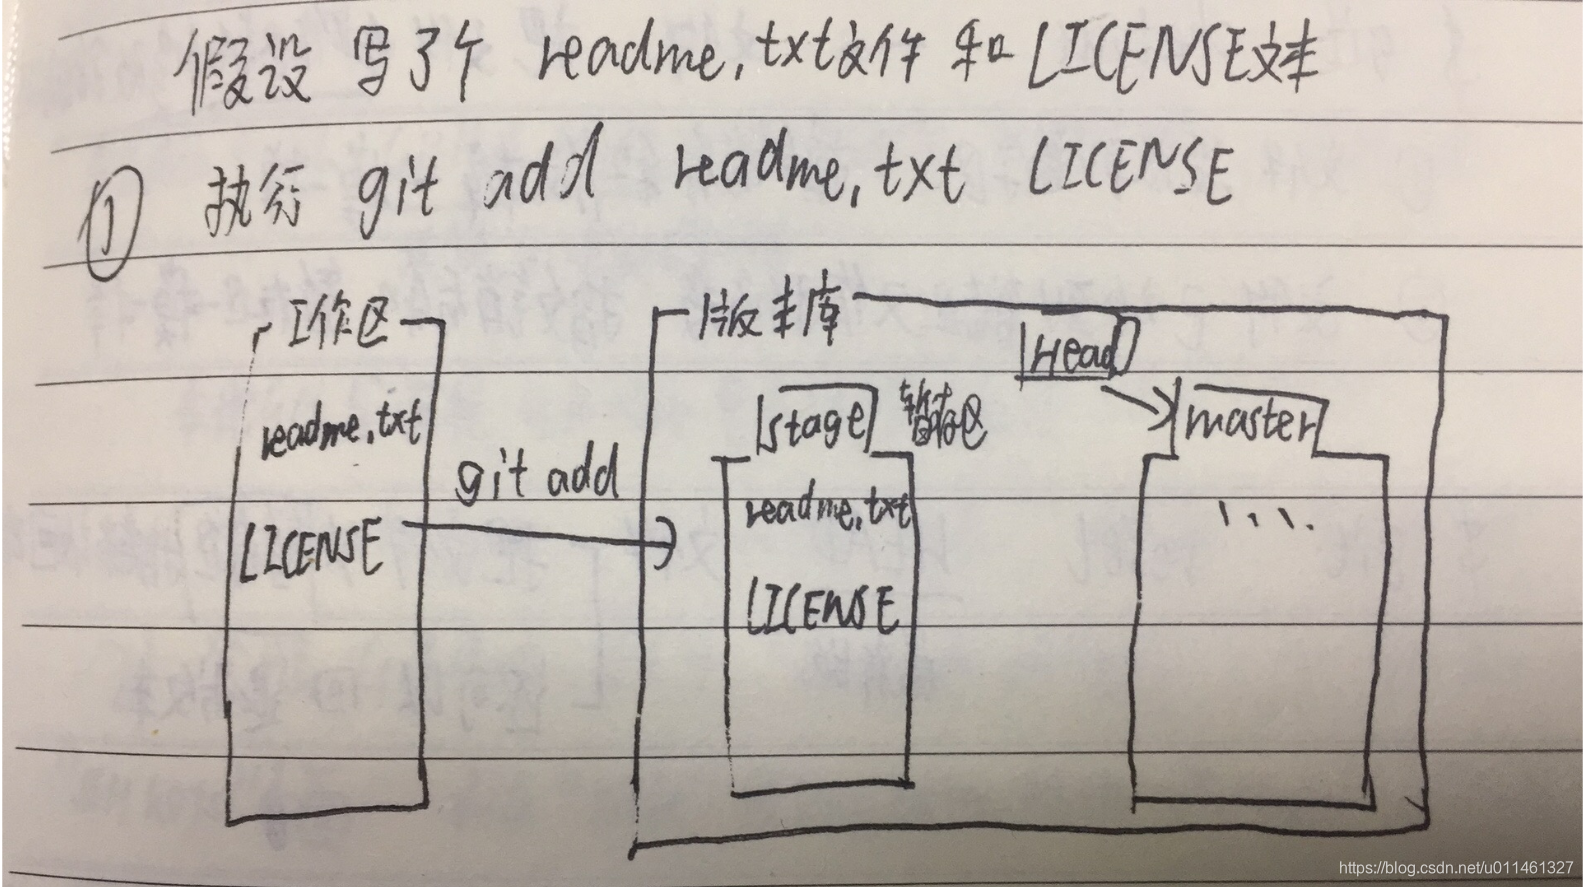 假设 写了个 readme.txt文件 和 LICENSE文本
① 执行 git add readme.txt LICENSE
工作区
readme.txt
LICENSE
git add
版本库
Head
stage 暂存区
readme.txt
LICENSE
master
....
https://blog.csdn.net/u011461327